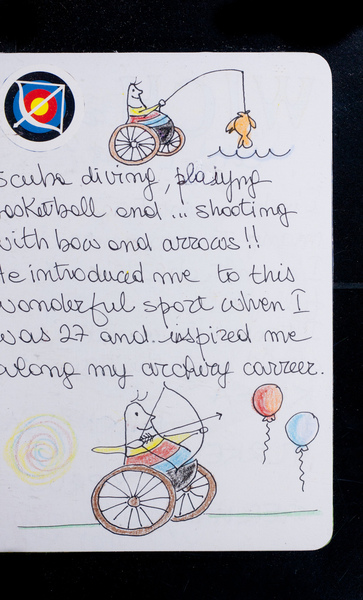 scuba diving, plaiyng
basketball and... shooting
with bow and arrows!!
He introduced me to this
wonderful sport when I
was 27 and inspired me
along my archery carreer.